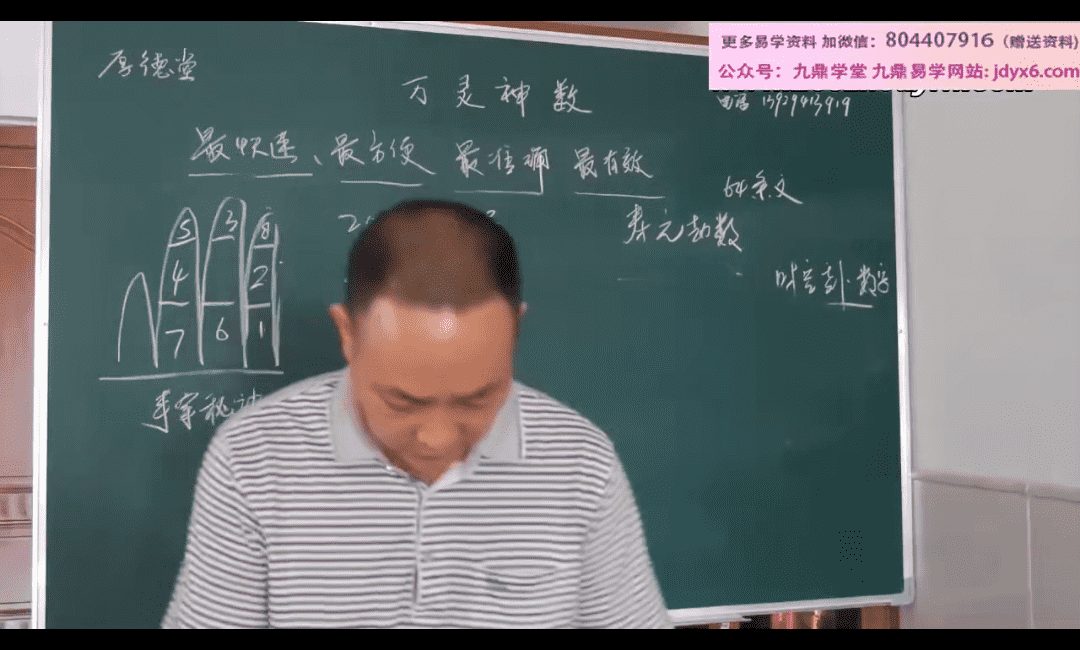 更多易学资料 加微信：804407916（赠送资料）
公众号：九鼎学堂 九鼎易学网站：jdyx6.com
厚德堂
万灵神数
电话 13929413919
最快速、最方便 最准确 最有效
64条文
寿元劫数
时空刻·数字
5 3 8
4 2
7 6 1